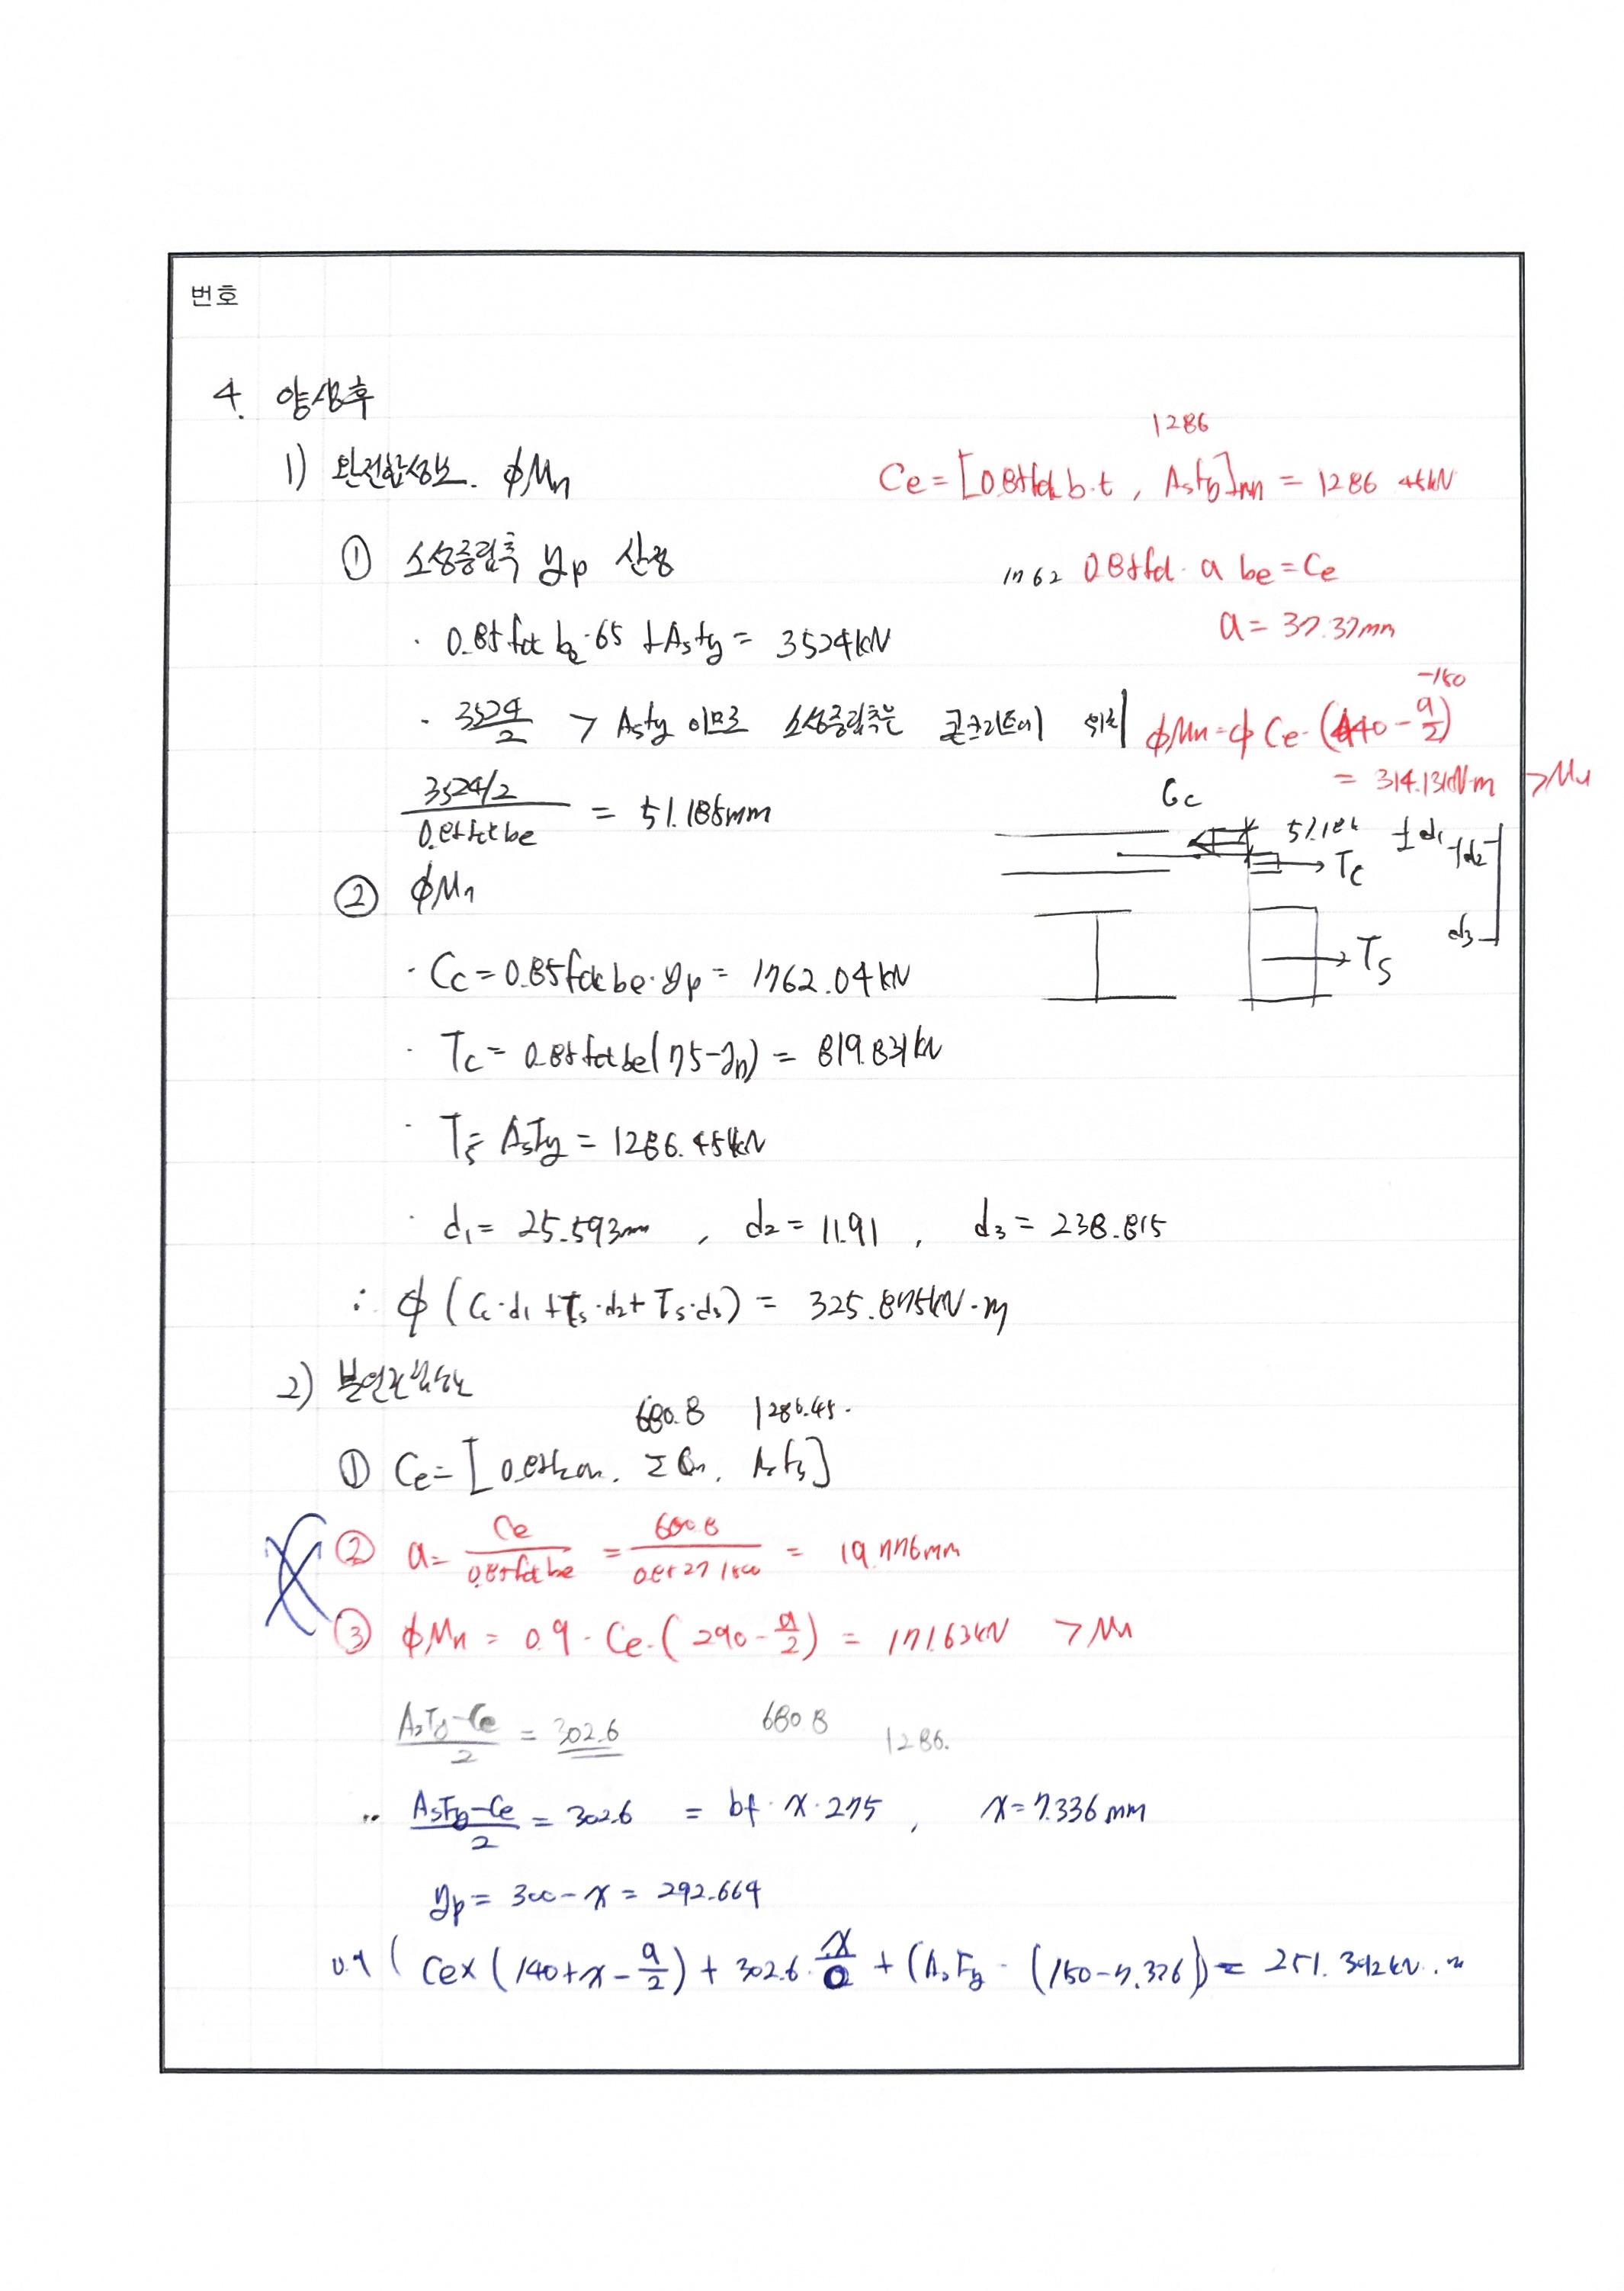 번호
4. 양생후
1) 완전합성보. φMn
1286
Ce = [0.85fck b·t , AsFy]min = 1286.45kN
① 소성중립축 yp 산정
1762 0.85fck · a be = Ce
a = 37.37mm
· 0.85fck be·65 + Asfy = 3524kN
-150
· 3524/2 > Asfy 이므로 소성중립축은 콘크리트에 위치
φMn = φ Ce · (440 - a/2)
= 314.13kN·m > Mu
(3524/2)/(0.85fck be) = 51.185mm
Cc
51.186 d1 d2
Tc
② φMn
d3
Ts
· Cc = 0.85fck be·yp = 1762.04kN
· Tc = 0.85fck be(75-yp) = 819.831kN
· Ts = AsFy = 1286.45kN
· d1 = 25.593mm , d2 = 11.91 , d3 = 238.815
∴ φ(Cc·d1 + Ts·d2 + Ts·d3) = 325.875kN·m
2) 불완전합성보
680.8 1286.45.
① Ce = [ ΣQn, AsFy]
② a = Ce/(0.85fck be) = 680.8/(0.85 27 1500) = 19.776mm
③ φMn = 0.9 · Ce·(290 - a/2) = 171.63kN > Mu
(AsFy-Ce)/2 = 302.6 680.8 1286.
(AsFy-Ce)/2 = 302.6 = bf · x · 275 , x = 7.336mm
yp = 300 - x = 292.664
0.9 ( Ce×(140+x-a/2) + 302.6· + (AsFy · (150-7.336)) = 251.342kN.m